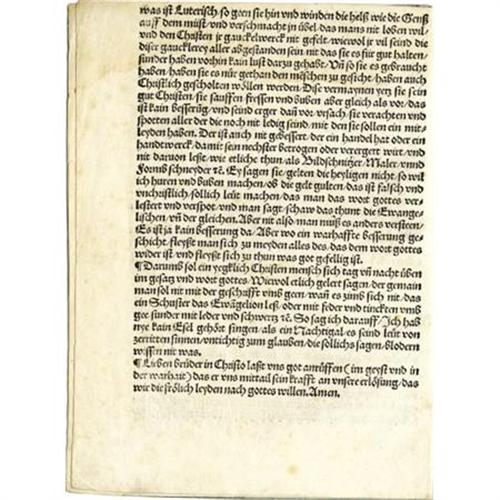 was ist Luterisch/ so geen sie hin vnd winden die helß wie die Genß
auff dem mist/ vnd verschmacht in übel/ das mans nit loben wil
vnd den Christen je gauckelwerck nit gefelt/ wiewol je vil seind die
diser gaucklerey aller abgestanden sein/ nit das sie es für gut halten/
sunder haben vorhin kain lust darzu gehabt/ Vnd so sie es gebraucht
haben/ haben sie es nur gethan den mēschen zu gesicht/ haben auch
Christlich gescholten wöllen werden/ Dise vermaynen yetz sie sein
gut Christen/ sie sauffen fressen vnd buben aber gleich als vor/ das
ist kain besserūg/ vnd seind erger dañ vor/ vrsach/ sie verachten vnd
spotten aller der die noch nit ledig seind/ mit den sie sollen ein mit-
leyden haben/ Der ist auch nit gebessert/ der ein handel hat oder ein
handtwerck/ damit sein nechster betrogen oder verergert wirt/ vnd
nit daruon leßt/ wie etliche thun/ als Bildschnitzer/ Maler/ vnnd
Formschneyder ꝛc. Ey sagen sie/ gelten die heyligen nicht/ so wil
ich huren vnd buben machen/ ob die gelt gulten/ das ist falsch vnd
vnchristlich/ sollich leüt machen/ das man das wort gottes ver-
lestert vnd verspot/ vnd man sagt/ schaw das thunt die Ewange-
lischen/ vñ der gleichen/ Aber nit also/ man muß es anders versteen/
Es ist ja kain besserung da/ Aber wo ein warhaffte besserung ge-
schicht/ fleyßt man sich zu meyden alles des/ das dem wort gottes
wider ist/ vnd fleyßt sich zu thun was got gefellig ist.
¶ Darumb sol ein yegklich Christen mensch sich tag vñ nacht üben
im gesatz vnd wort gottes/ Wiewol etlich gelert sagen/ der gemain
man sol nit mit der geschrifft vmb geen/ wañ es zimb sich nit/ das
ein Schuster das Ewāgelion leß/ oder mit feder vnd tinckten vmb
gee/ sunder mit leder vnd schwertz ꝛc. So sag ich darauff/ Ich hab
nye kain Esel gehört singen/ als ein Nachtigal/ es seind leüt von
zerritten sinnen/ vntichtig zum glauben/ die sollichs sagen/ blodern
wissen nit was.
¶ Lieben brüder in Christo laßt vns got anrüffen (im geyst vnd in
der warhait) das er vns mittail sein krafft an vnsere erlösung/ das
wir die frölich leyden nach gottes willen. Amen.